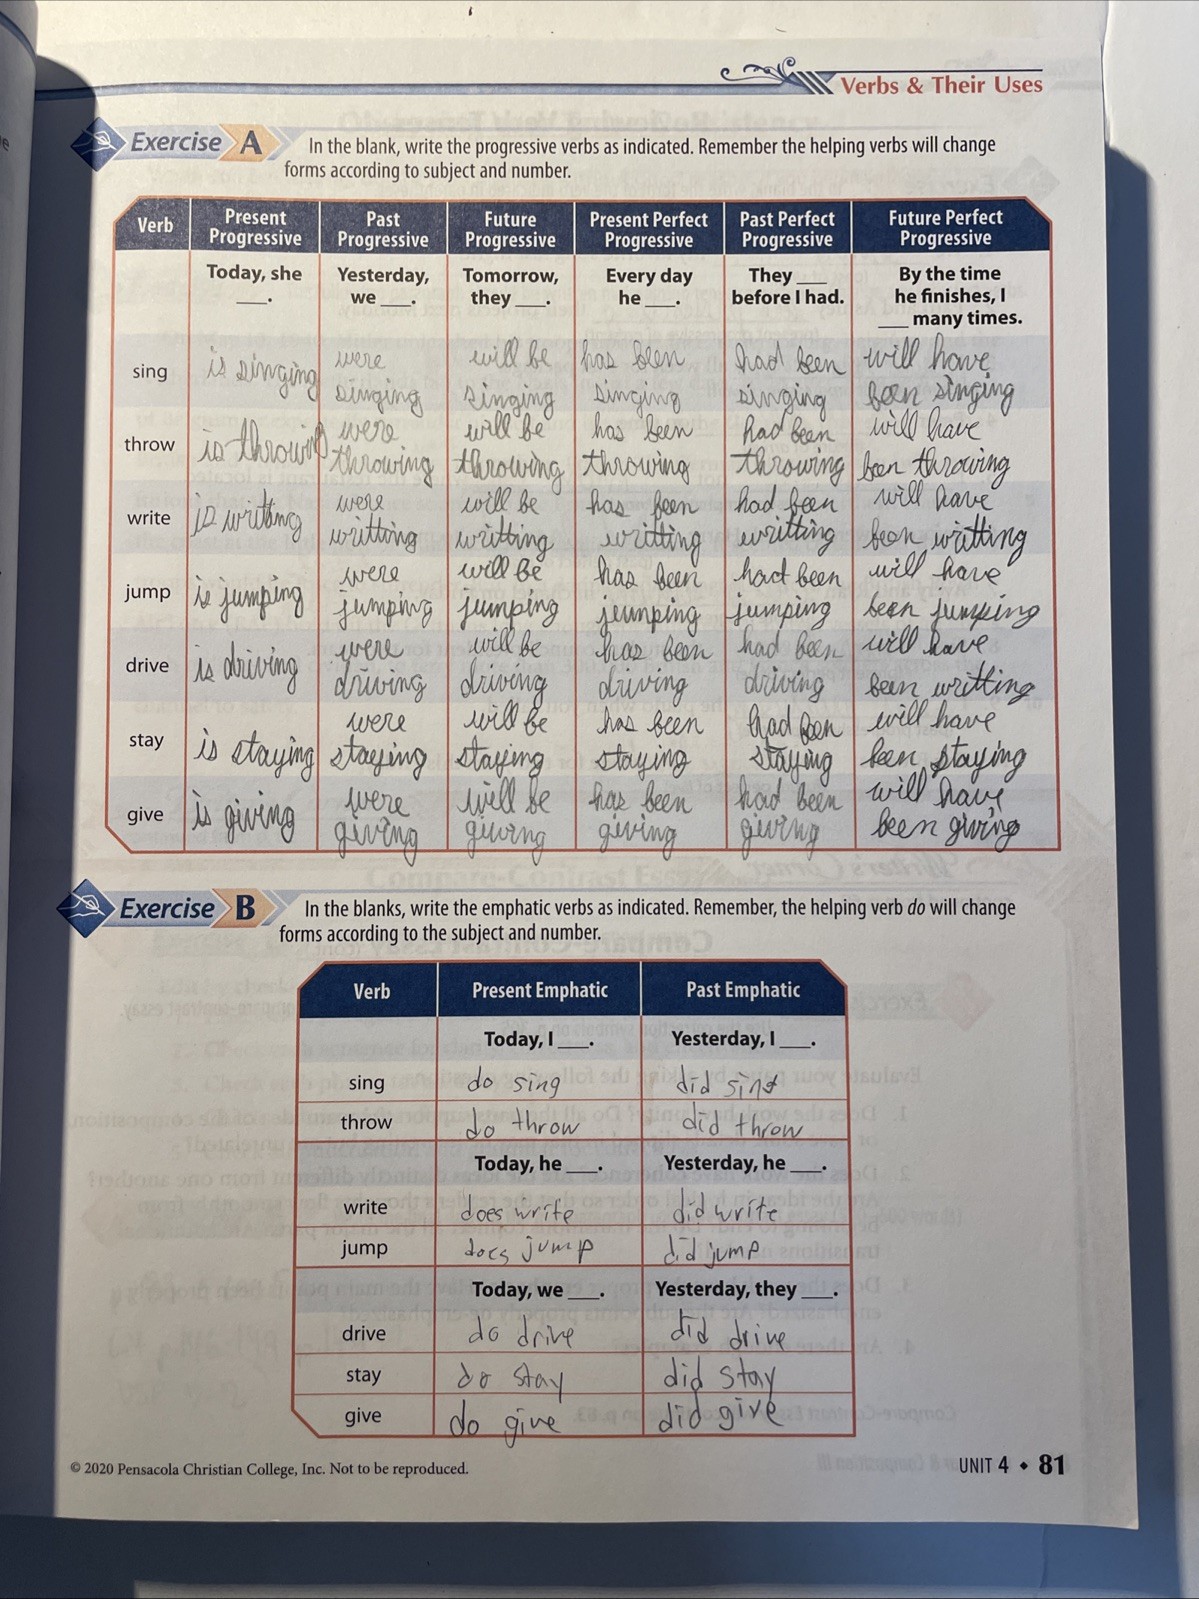 Verbs & Their Uses
Exercise A In the blank, write the progressive verbs as indicated. Remember the helping verbs will change
forms according to subject and number.
Verb Present Progressive Past Progressive Future Progressive Present Perfect Progressive Past Perfect Progressive Future Perfect Progressive
Today, she ___. Yesterday, we ___. Tomorrow, they ___. Every day he ___. They ___ before I had. By the time he finishes, I ___ many times.
sing is singing were singing will be singing has been singing had been singing will have been singing
throw is throwing were throwing will be throwing has been throwing had been throwing will have been throwing
write is writting were writting will be writting has been writting had been writting will have been writting
jump is jumping were jumping will be jumping has been jumping had been jumping will have been jumping
drive is driving were driving will be driving has been driving had been driving will have been writting
stay is staying were staying will be staying has been staying had been staying will have been staying
give is giving were giving will be giving has been giving had been giving will have been giving
Exercise B In the blanks, write the emphatic verbs as indicated. Remember, the helping verb do will change
forms according to the subject and number.
Verb Present Emphatic Past Emphatic
Today, I ___. Yesterday, I ___.
sing do sing did sing
throw do throw did throw
Today, he ___. Yesterday, he ___.
write does write did write
jump does jump did jump
Today, we ___. Yesterday, they ___.
drive do drive did drive
stay do stay did stay
give do give did give
© 2020 Pensacola Christian College, Inc. Not to be reproduced.
UNIT 4 • 81